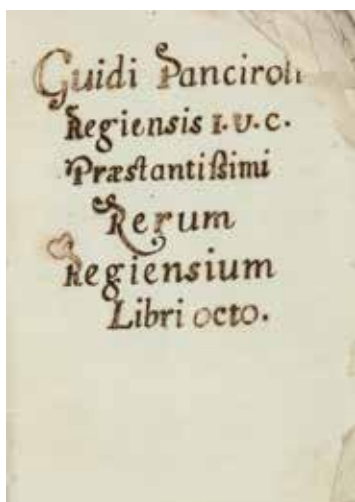 Guidi Panciroli
Regiensis I.V.C.
Præstantißimi
Rerum
Regiensium
Libri octo.